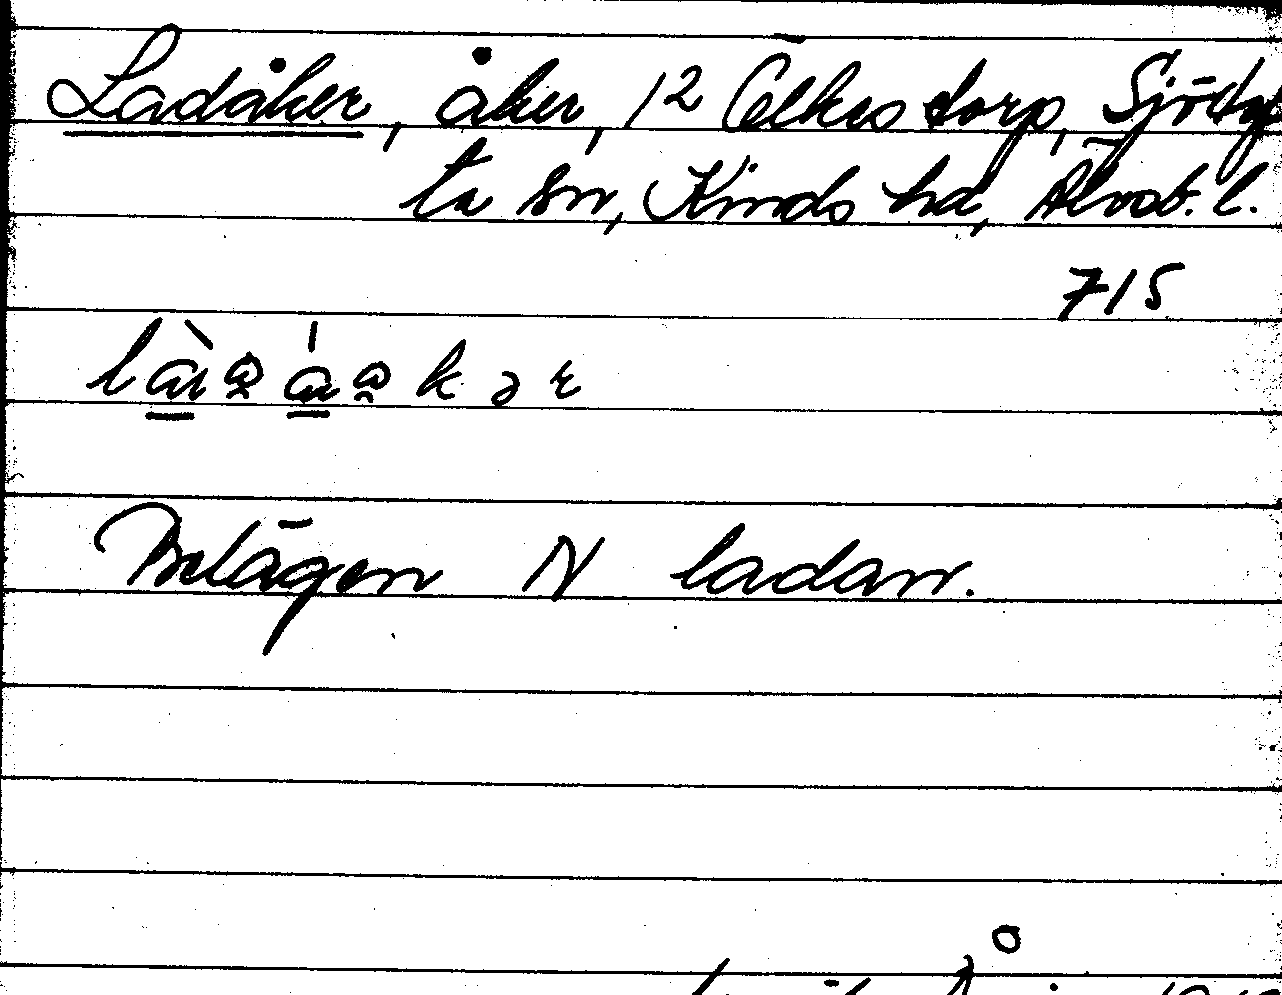 Ladåker, åker, 12 Ölkastorp, Sjötof
ta sn, Kinds hd, Älvsb. l.
715
Belägen N ladan.